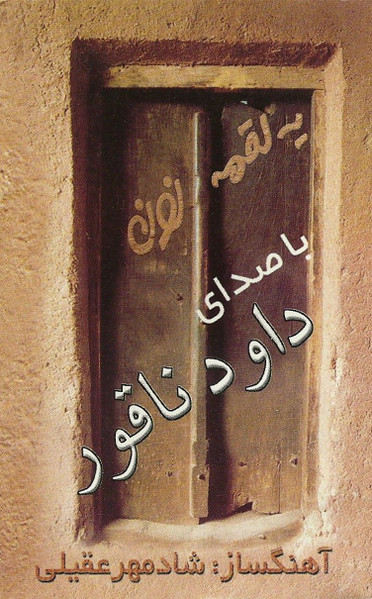 یه لقمه نون
با صدای
داود ناقور
آهنگساز: شادمهر عقیلی